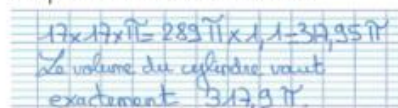 17×17×π= 289π×1,1=317,95π
Le volume du cylindre vaut
exactement 317,9π.